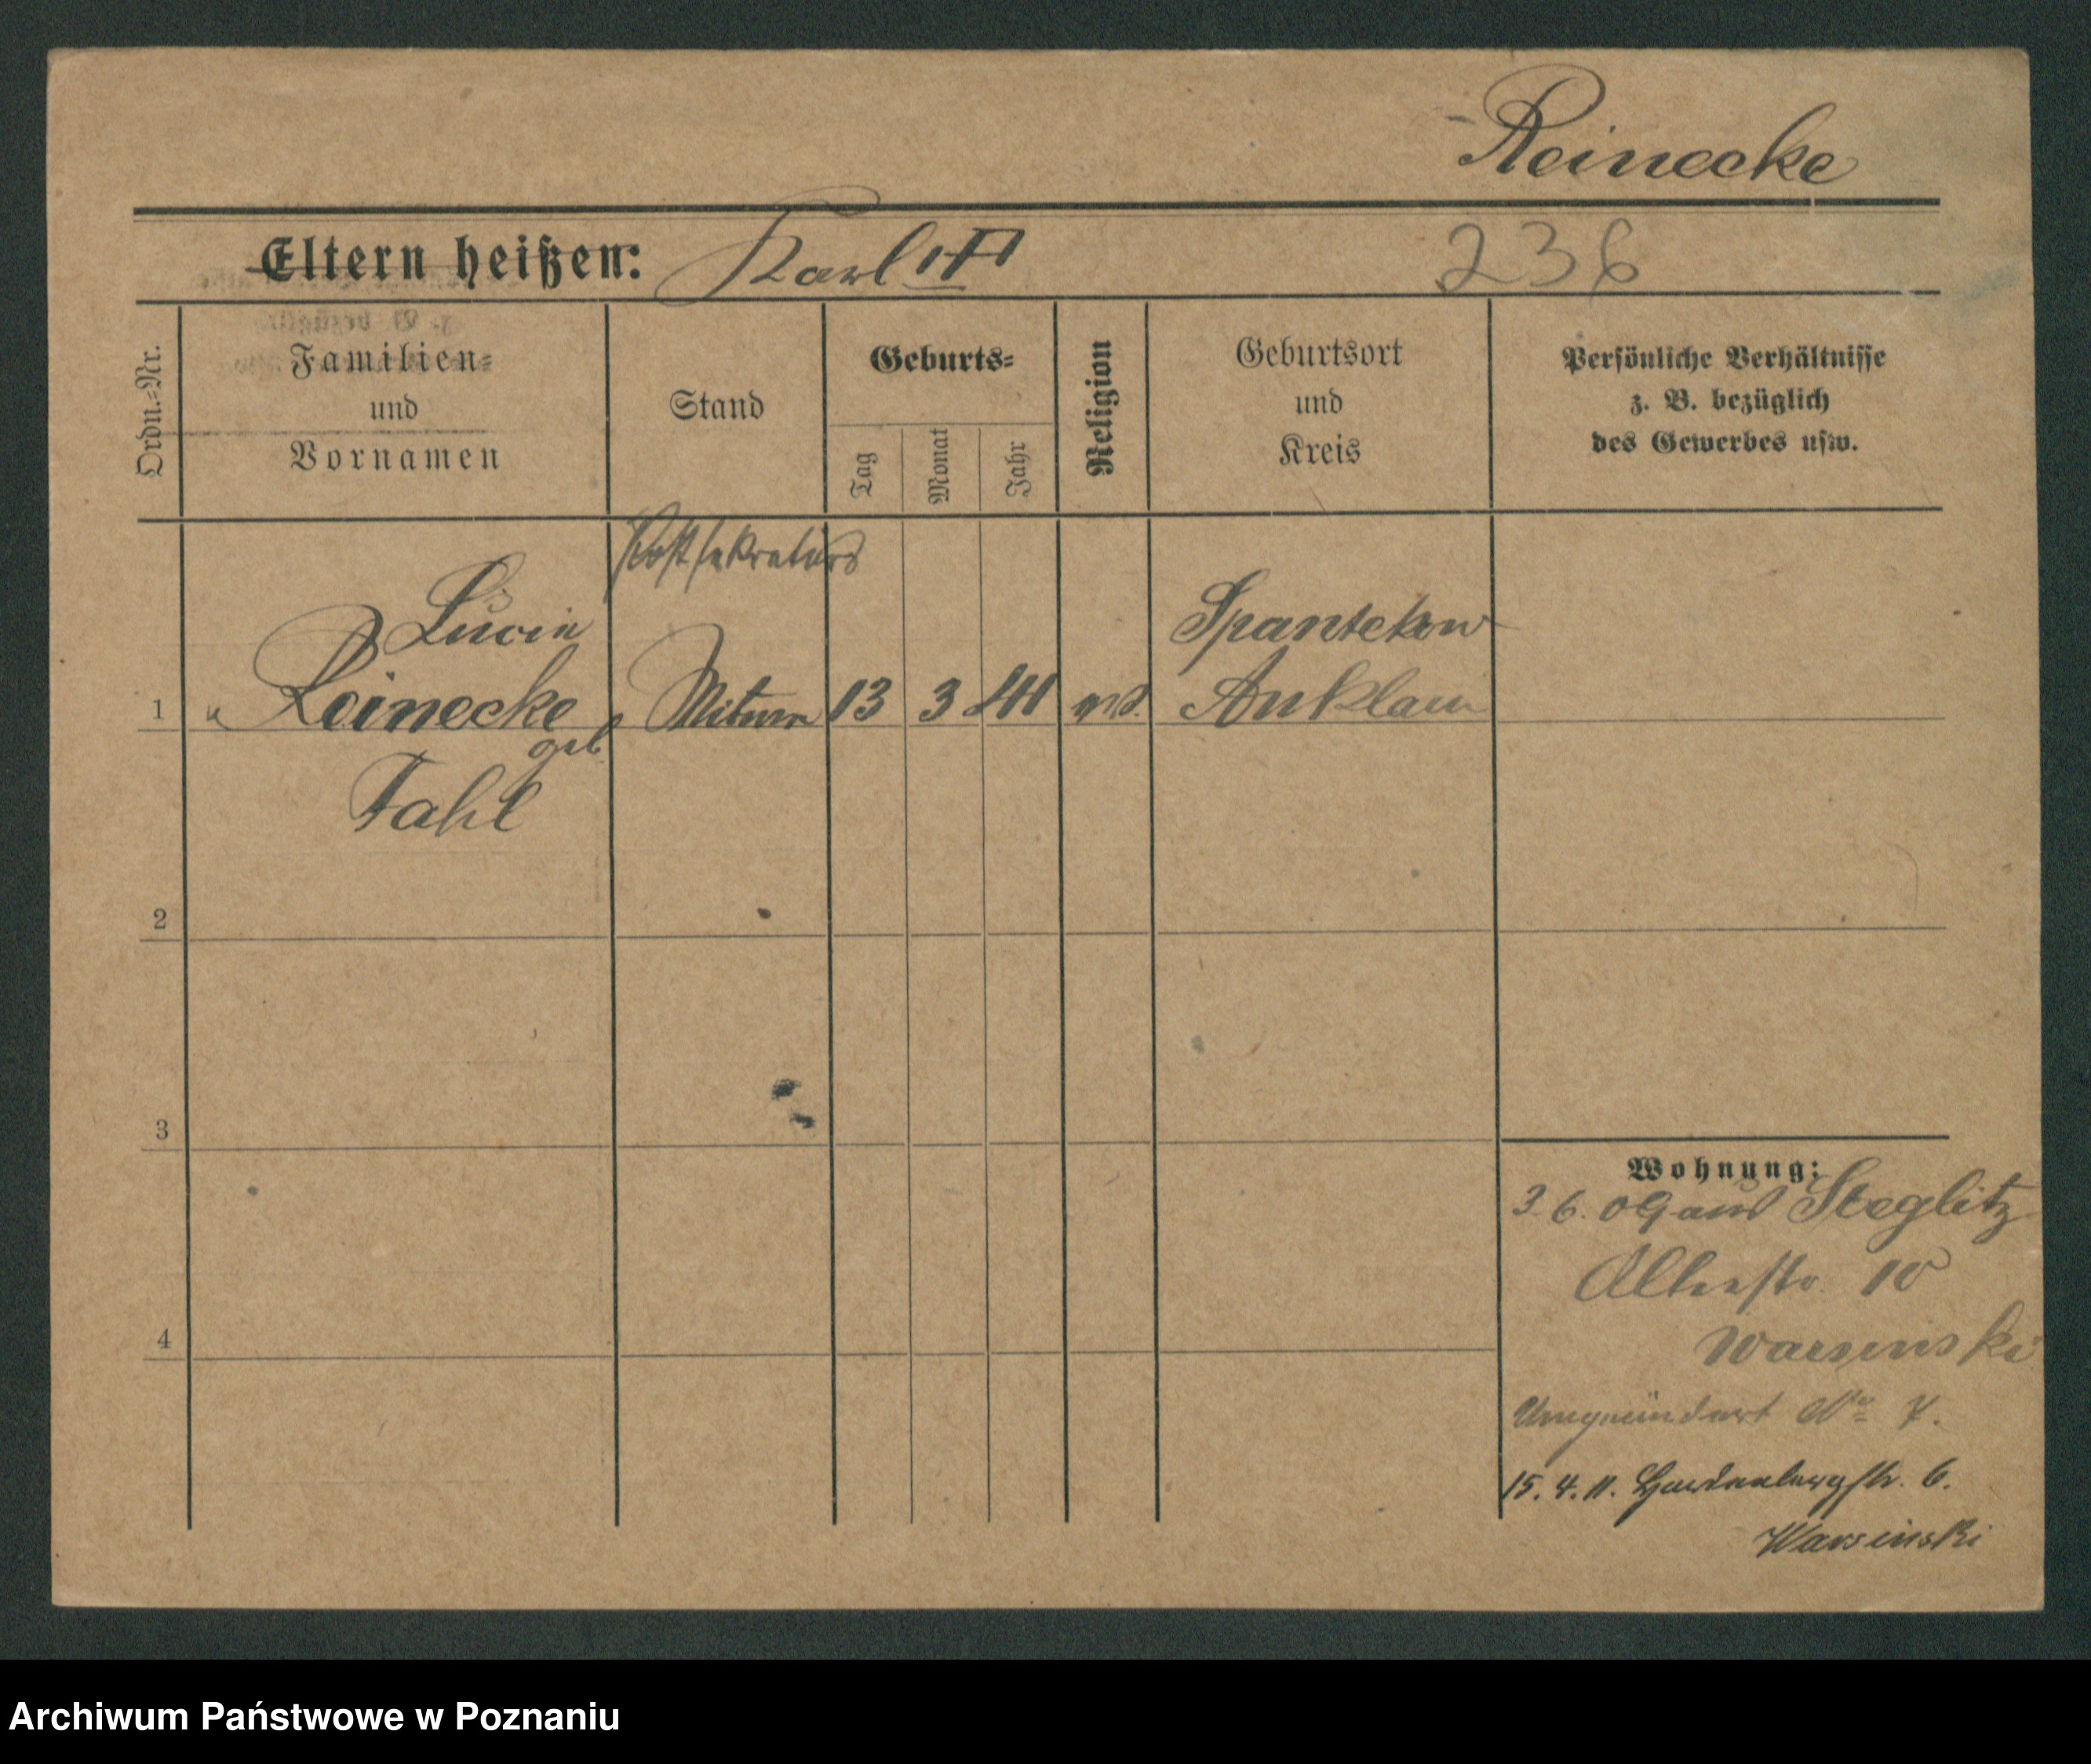 Reinecke
Eltern heißen: Karl 236
Ordn.-Nr.
Familien-
und
Vornamen
Stand
Geburts-
Tag
Monat
Jahr
Religion
Geburtsort
und
Kreis
Persönliche Verhältnisse
z. B. bezüglich
des Gewerbes usw.
Postsekretärs
Lucie Spantekow
1 Reinecke Witwe 13 3 41 Anklam
geb
Fahl
2
3
4
Wohnung:
3. 6. 09 aus Steglitz
10
Warsinski
No 7.
15. 4. 11. Hardenbergstr. 6.
Warsinski
Archiwum Państwowe w Poznaniu